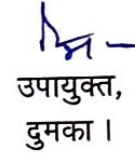 उपायुक्त,
दुमका ।